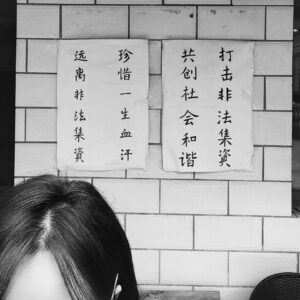 打击非法集資
共创社会和谐
珍惜一生血汗
远离非法集資